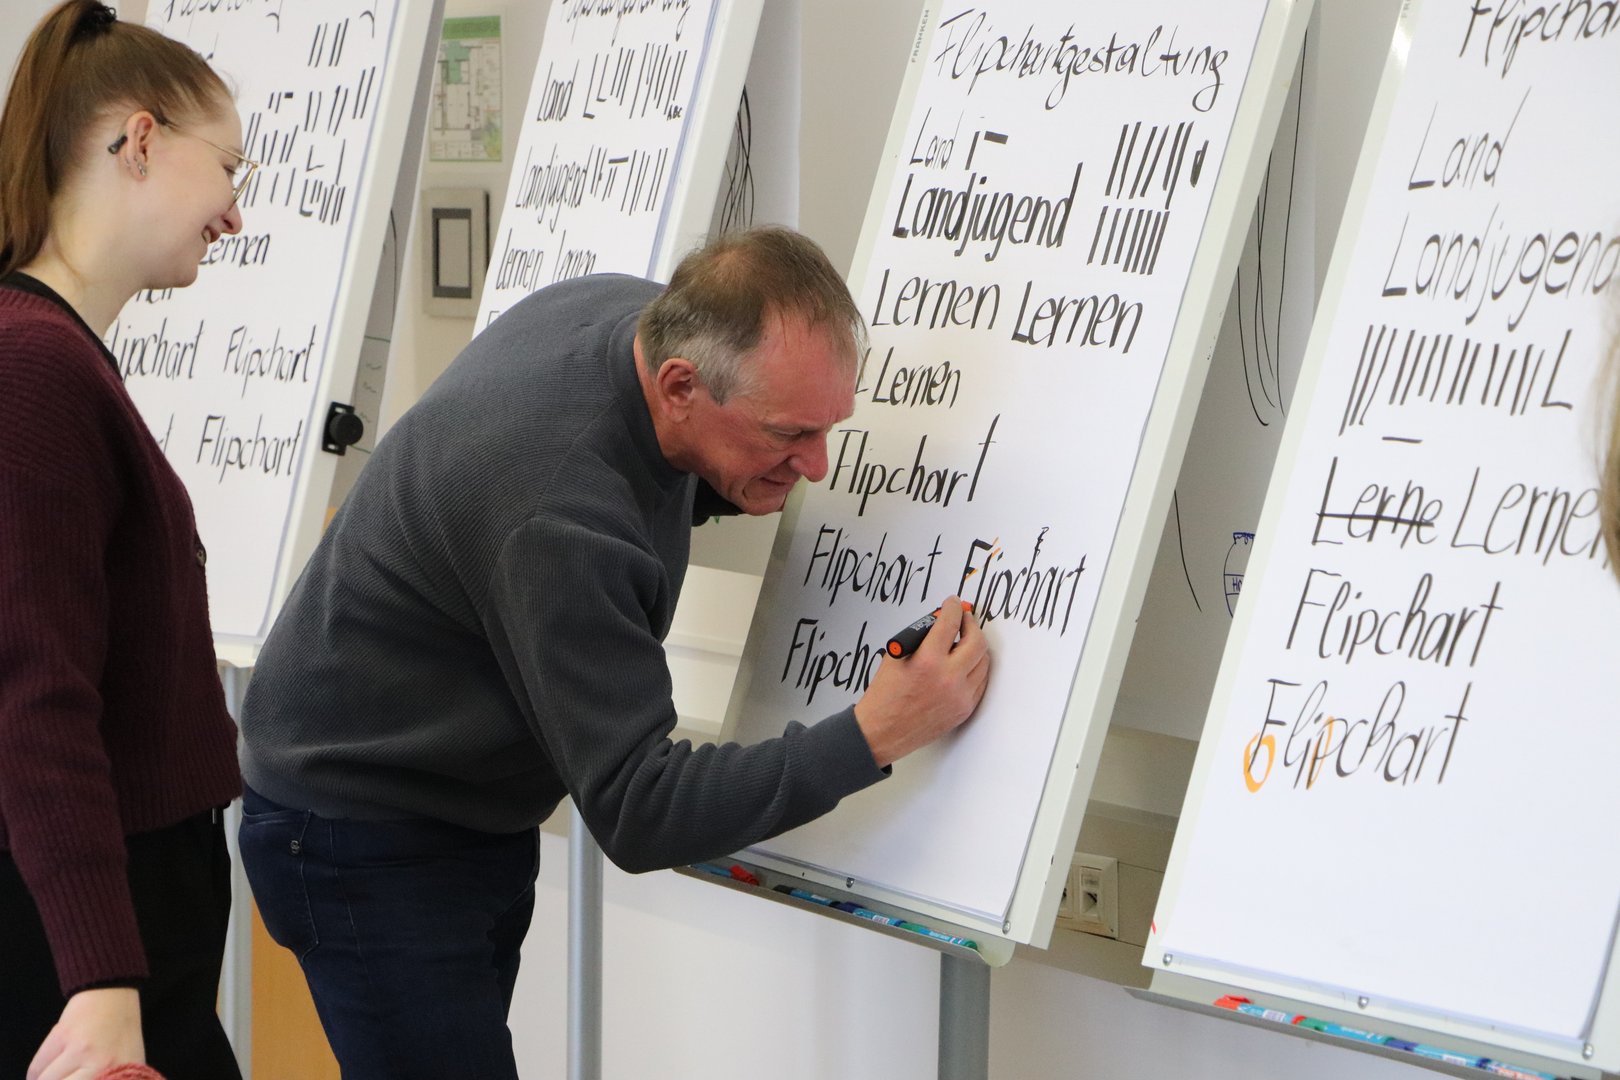 Lernen
Flipchart Flipchart
Flipchart
Land
ABC
Landjugend
Lernen Lernen
FRANKEN
Flipchartgestaltung
Land
Landjugend
Lernen Lernen
Lernen
Flipchart
Flipchart Flipchart
Flipcha
Flipchar
Land
Landjugend
L
Lerne Lernen
Flipchart
Flipchart